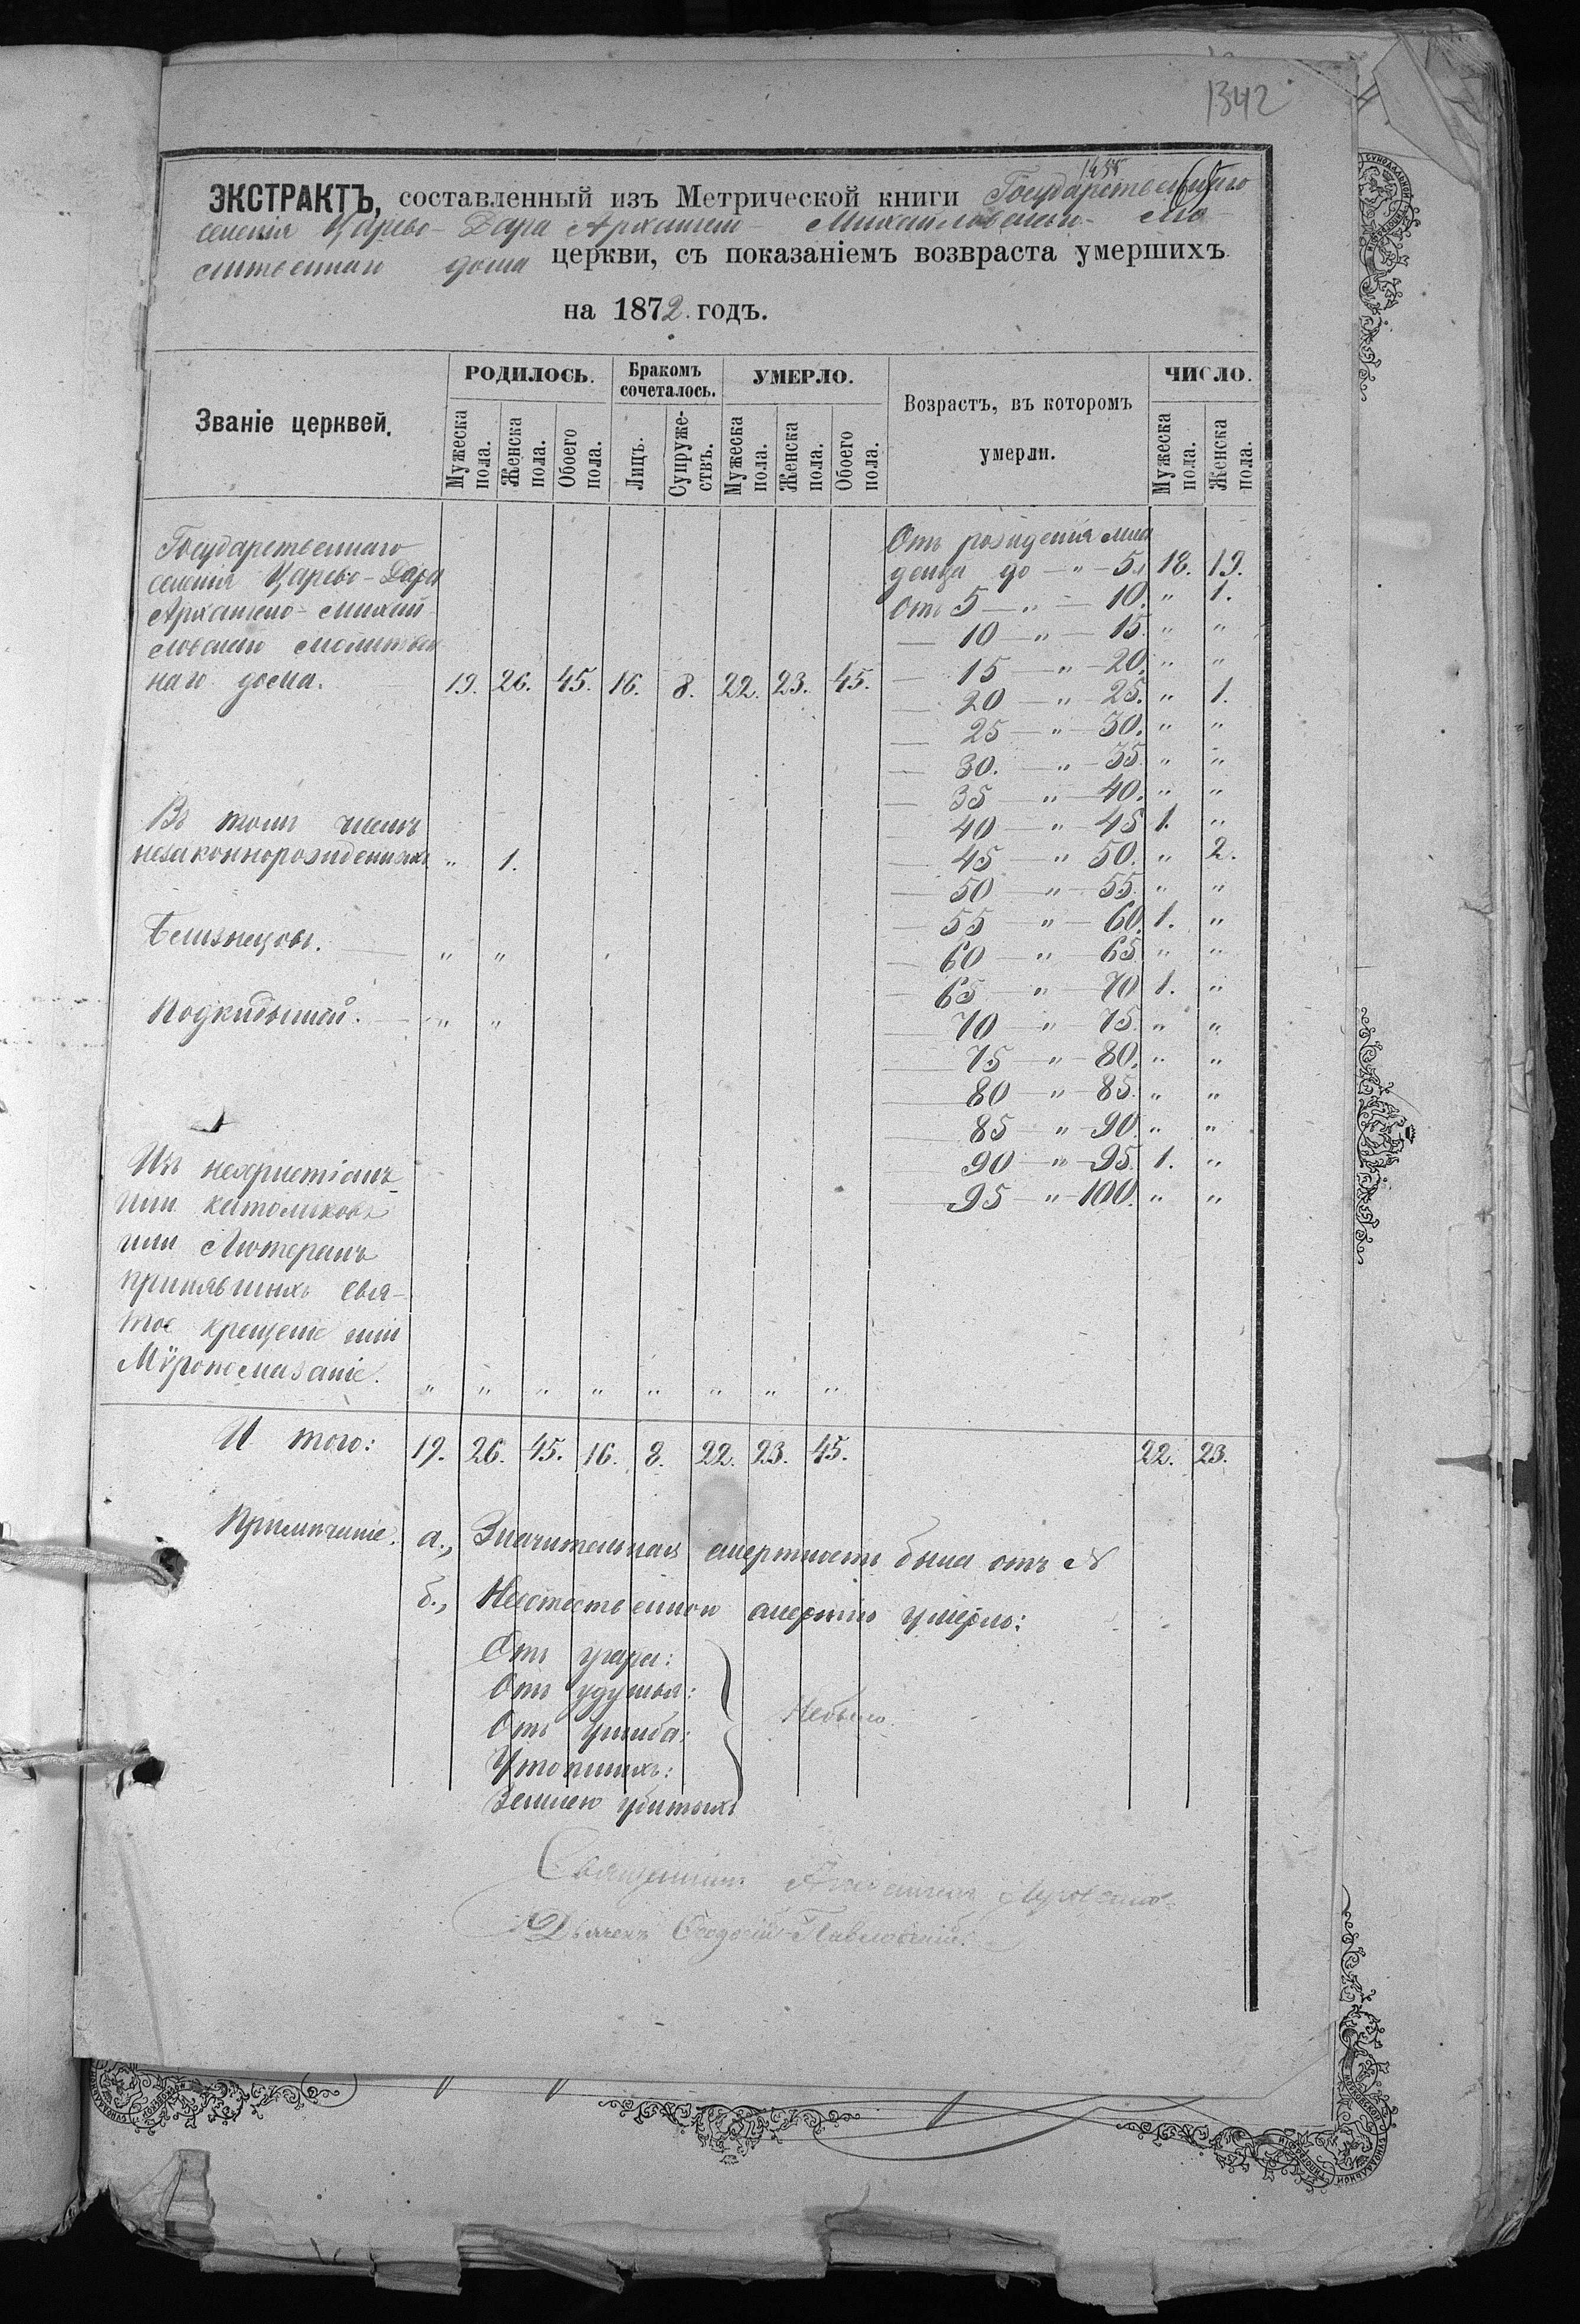 1342
1455
ЭКСТРАКТЪ, составленный изъ Метрической книги Государственнаго
селенія Царево-Дара Архангело-Михайловскаго Мо-
литвеннаго дома церкви, съ показаніемъ возвраста умершихъ
на 1872 годъ.
Званіе церквей.
РОДИЛОСЬ.
Бракомъ сочеталось.
УМЕРЛО.
Возрастъ, въ которомъ умерли.
ЧИСЛО.
Мужеска пола.
Женска пола.
Обоего пола.
Лицъ.
Супружествъ.
Мужеска пола.
Женска пола.
Обоего пола.
Мужеска пола.
Женска пола.
Государственнаго
селенія Царево-Дара
Архангело-Михай-
ловскаго молитвен
наго дома. 19. 26. 45. 16. 8. 22. 23. 45.
Въ томъ числѣ
незаконнорожденныхъ " 1.
Близнецовъ. " "
Подкидышей. " "
Изъ нехристіанъ
или католиковъ
или Лютеранъ
принявшихъ Свя-
тое крещеніе или
Мѵропомазаніе. " " " " " " " "
Отъ рожденія мла
денца до — " — 5. 18. 19.
Отъ 5 — " — 10. " 1.
— 10 — " — 15. " "
— 15 — " — 20. " "
— 20 — " — 25. " 1.
— 25 — " — 30. " "
— 30. — " — 35. " "
— 35 — " — 40. " "
— 40 — " 45 1. "
— 45 — " 50. " 2.
— 50 — " — 55. " "
— 55 — " — 60. 1. "
— 60 — " — 65. " "
— 65 — " — 70. 1. "
— 70 — " — 75. " "
— 75 — " — 80. " "
— 80 — " — 85. " "
— 85 — " — 90. " "
— 90 — " — 95. 1. "
— 95 — " — 100. " "
И того: 19. 26. 45. 16. 8. 22. 23. 45. 22. 23.
Примѣчаніе. а., Значительная смертность была отъ N
б., Неестественною смертію умерло:
Отъ угара:
Отъ удушья:
Отъ ушиба:
Утопшихъ:
Землею убитыхъ
Небыло.
Священникъ
Дьячекъ Ѳеодосій Павловскій.